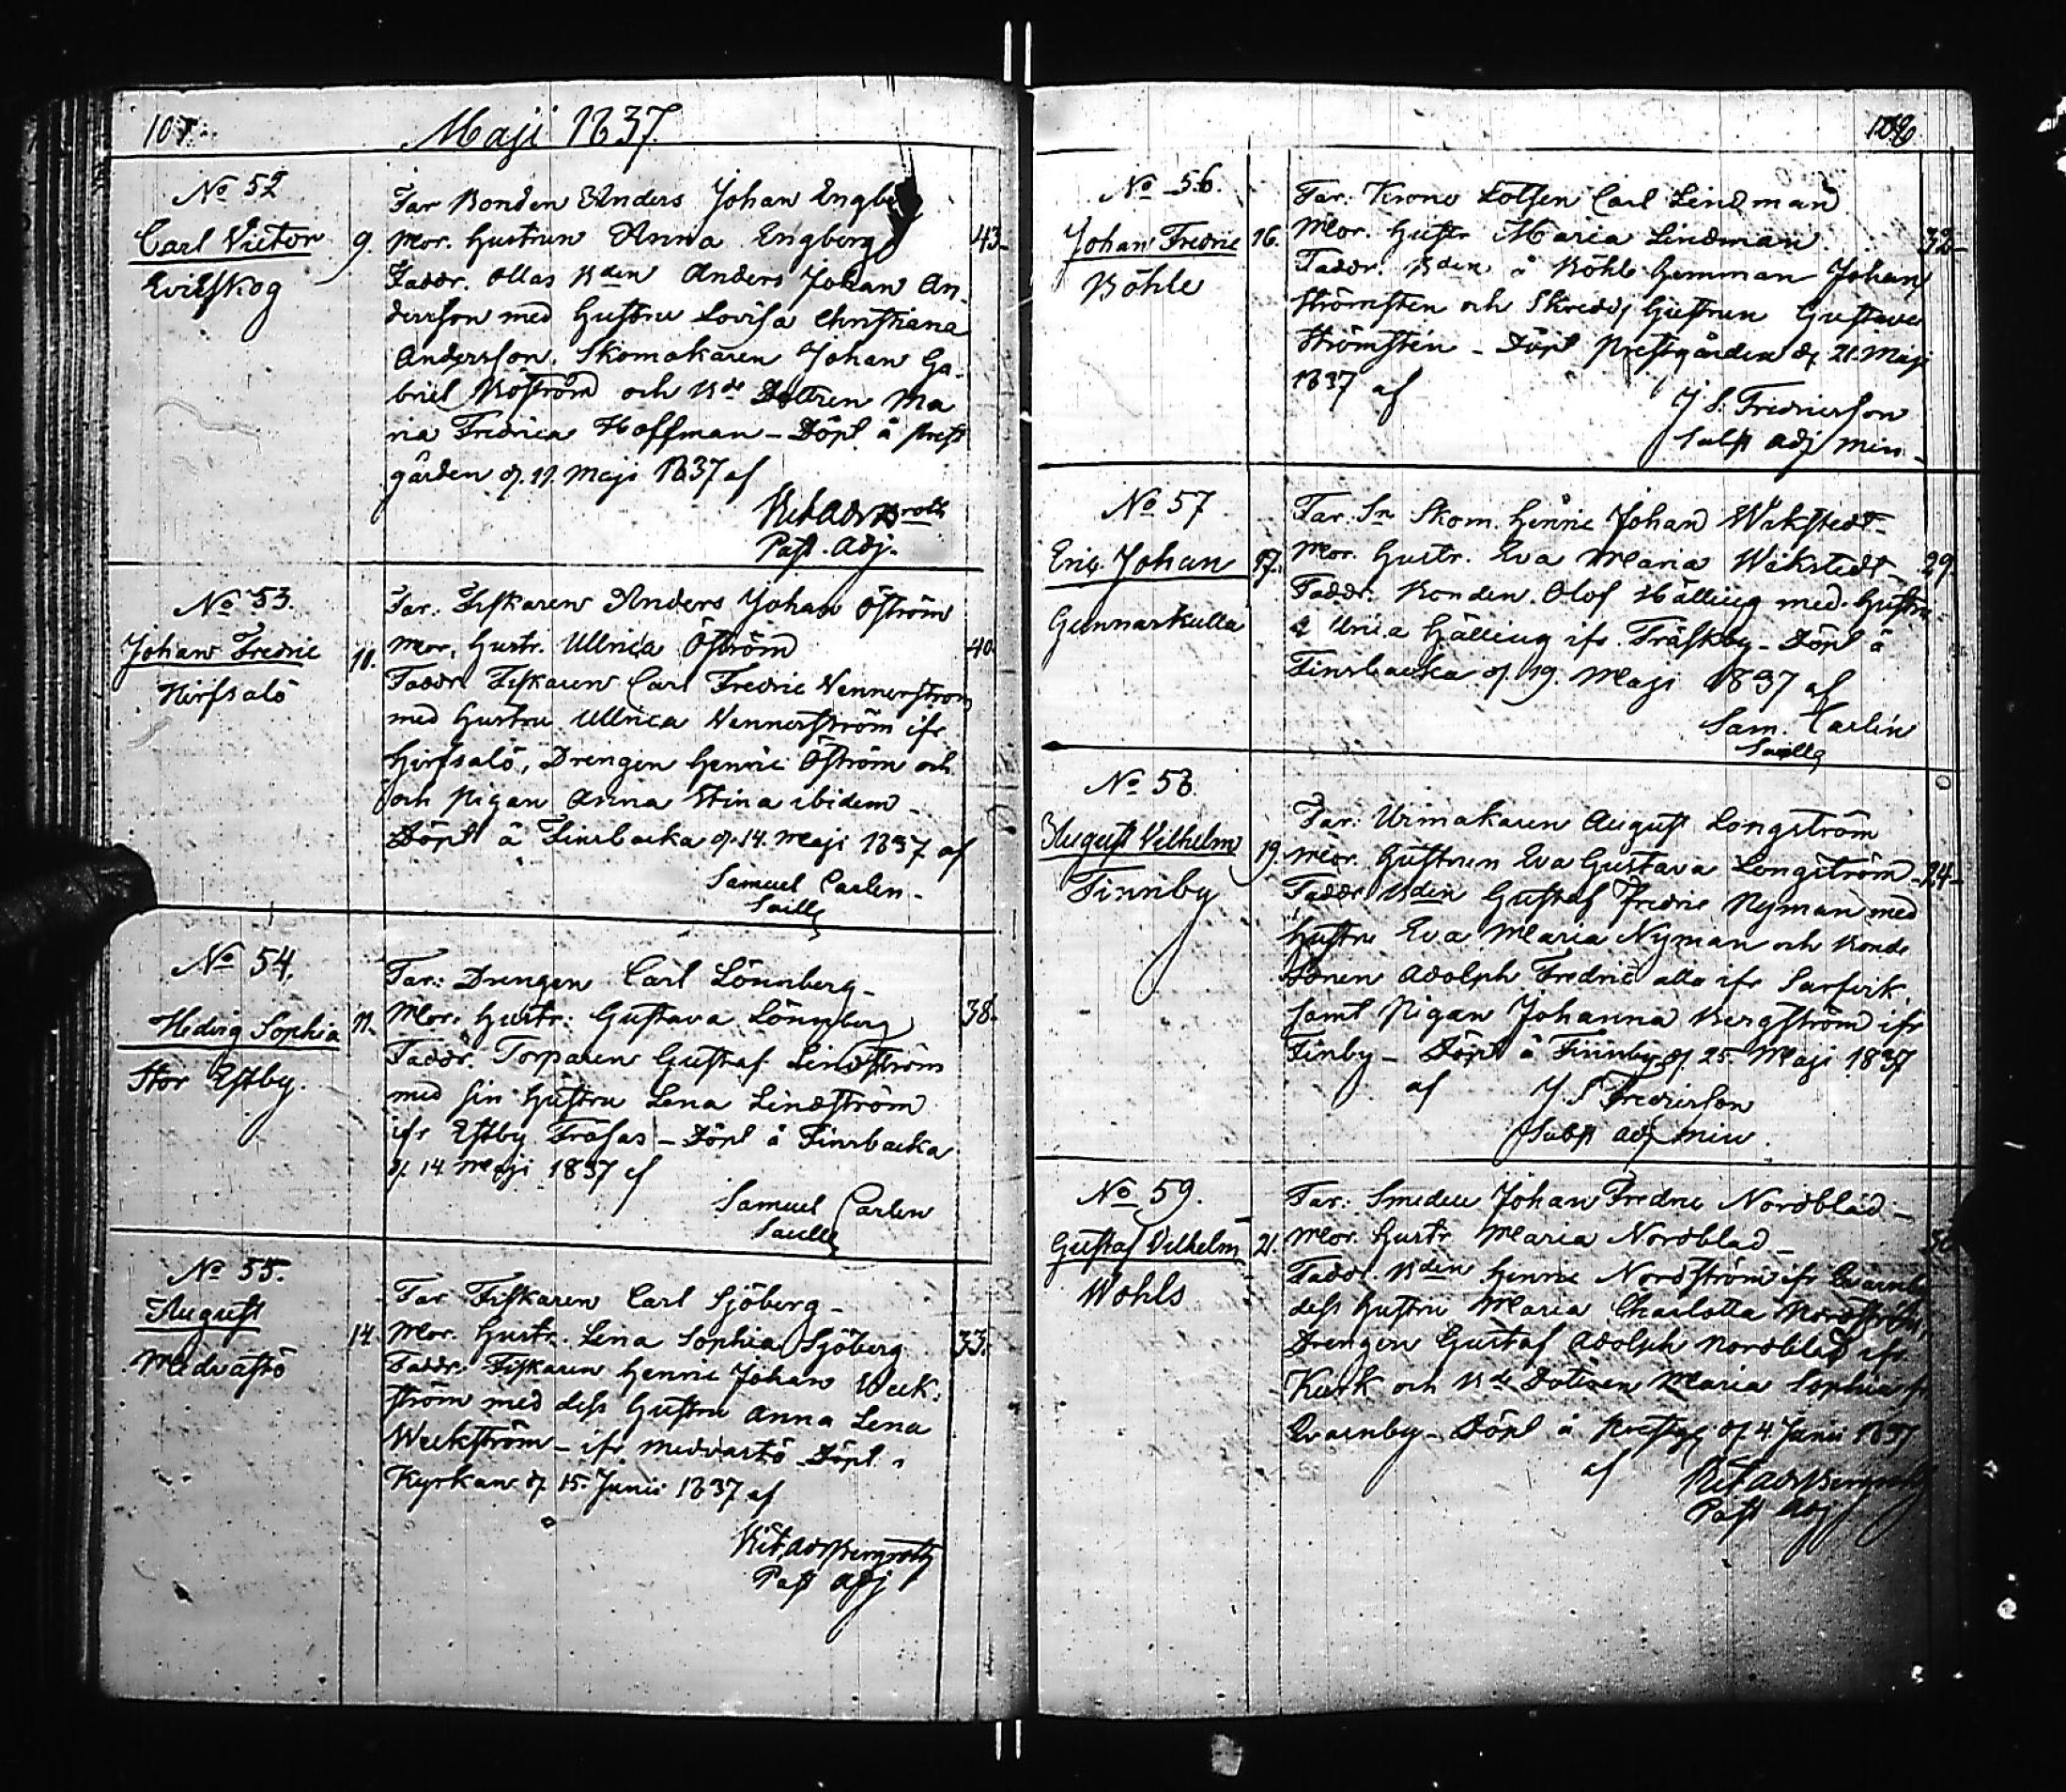 107.
Maji 1837.
No 52
Carl Victor
Evitskog
9.
Far Bonden Anders Johan Engbe
Mor. Hustrun Anna Engberg
43
Faddr. Ollas Bden Anders Johan An-
dersson med Hustru Lovisa Christiana
Andersson. Skomakaren Johan Ga-
briel Boström och Bde Dottren Ma
ria Fredrica Hoffman - Döpt å Prest
gården d. 17. Maji 1837 af
Past. Adj.
No 53.
Johan Fredric
Hirfsalö
11.
Far. Fiskaren Anders Johan Öström
Mor. Hustr. Ullrica Öström
40
Faddr Fiskaren Carl Fredric Wennerström
med Hustru Ullrica Wennerström ifr
Hirfsalö, Drengen Henric Öström och
och Pigan Anna Stina ibidem -
Döpt å Finsbacka d. 14. Maji 1837 af
Samuel Carlen -
Sacell
No 54.
Hedvig Sophia
Stor Estby.
11.
Far: Drengen Carl Lönnberg -
Mor. Hustr: Gustava Lönnberg
38.
Faddr. Torparen Gustaf Lindström
med sin Hustru Lena Lindström
ifr Estby Träsas - Döpt å Finsbacka
d. 14 Maji 1837 af
Samuel Carlen
Sacell
No 55.
August
Medvastö
14.
Far Fiskaren Carl Sjöberg -
Mor. Hustr. Lena Sophia Sjöberg
33.
Faddr. Fiskaren Henric Johan Week-
ström med dess Hustru Anna Lena
Weekström - ifr Medvastö - Döpt i
Kyrkan d. 15. Junii 1837 af
Past adj
No 56.
Johan Fredric
Böhle
16.
Far. Krono Lotsen Carl Lindman
Mor. Hustr Maria Lindman
32
Faddr. Bden å Böhle Hemman Johan
Strömsten och Hustrun Gustava
Strömsten - Döpt Prestgården d. 21. Maji
1837 af
J S. Fredricson
Subst Adj Min
No 57
Eric Johan
Gunnarskulla
17.
Far. Sn Skom. Henric Johan Wikstedt
Mor. Hustr. Eva Maria Wikstedt -
29.
Faddr. Bonden Olof Hälling med Hustru
Ulrica Hälling ifr. Träskby - Döpt å
Finsbacka d. 19. Maji 1837 af
Sam. Carlén
Sacell
No 58.
August Vilhelm
Finnby
19.
Far: Urmakaren August Longström
Mor. Hustrun Eva Gustava Longström
24
Faddr Bden Gustaf Fredric Nyman med
Hustru Eva Maria Nyman och Bonde
Sonen Adolph Fredric alla ifr Sarfvik
samt Pigan Johanna Bergström ifr
Finby - Döpt å Finnby d. 25 Maji 1837
af J S Fredricson
Subst adj min.
No 59.
Gustaf Vilhelm
Wohls
21.
Far: Smeden Johan Fredric Nordblad -
Mor. Hustr Maria Nordblad -
Faddr. Bden Henric Nordström ifr Qvarnby
dess Hustru Maria Charlotta Nordström,
Drengen Gustaf Adolph Nordblad ifr
Kurk och Bde Dottren Maria Sophia fr
Qvarnby - Döpt å Prestg d. 4 Junii 1837
af
Past Adj